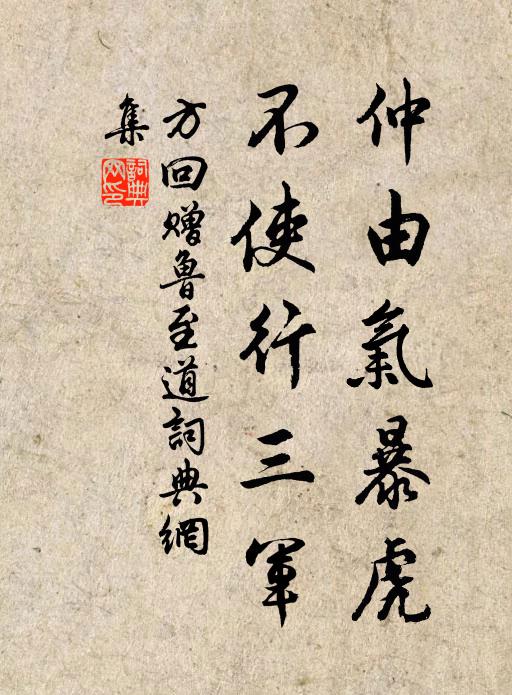 仲由氣暴虎
不使行三軍
方回贈魯至道詞典網
集
詞典網印